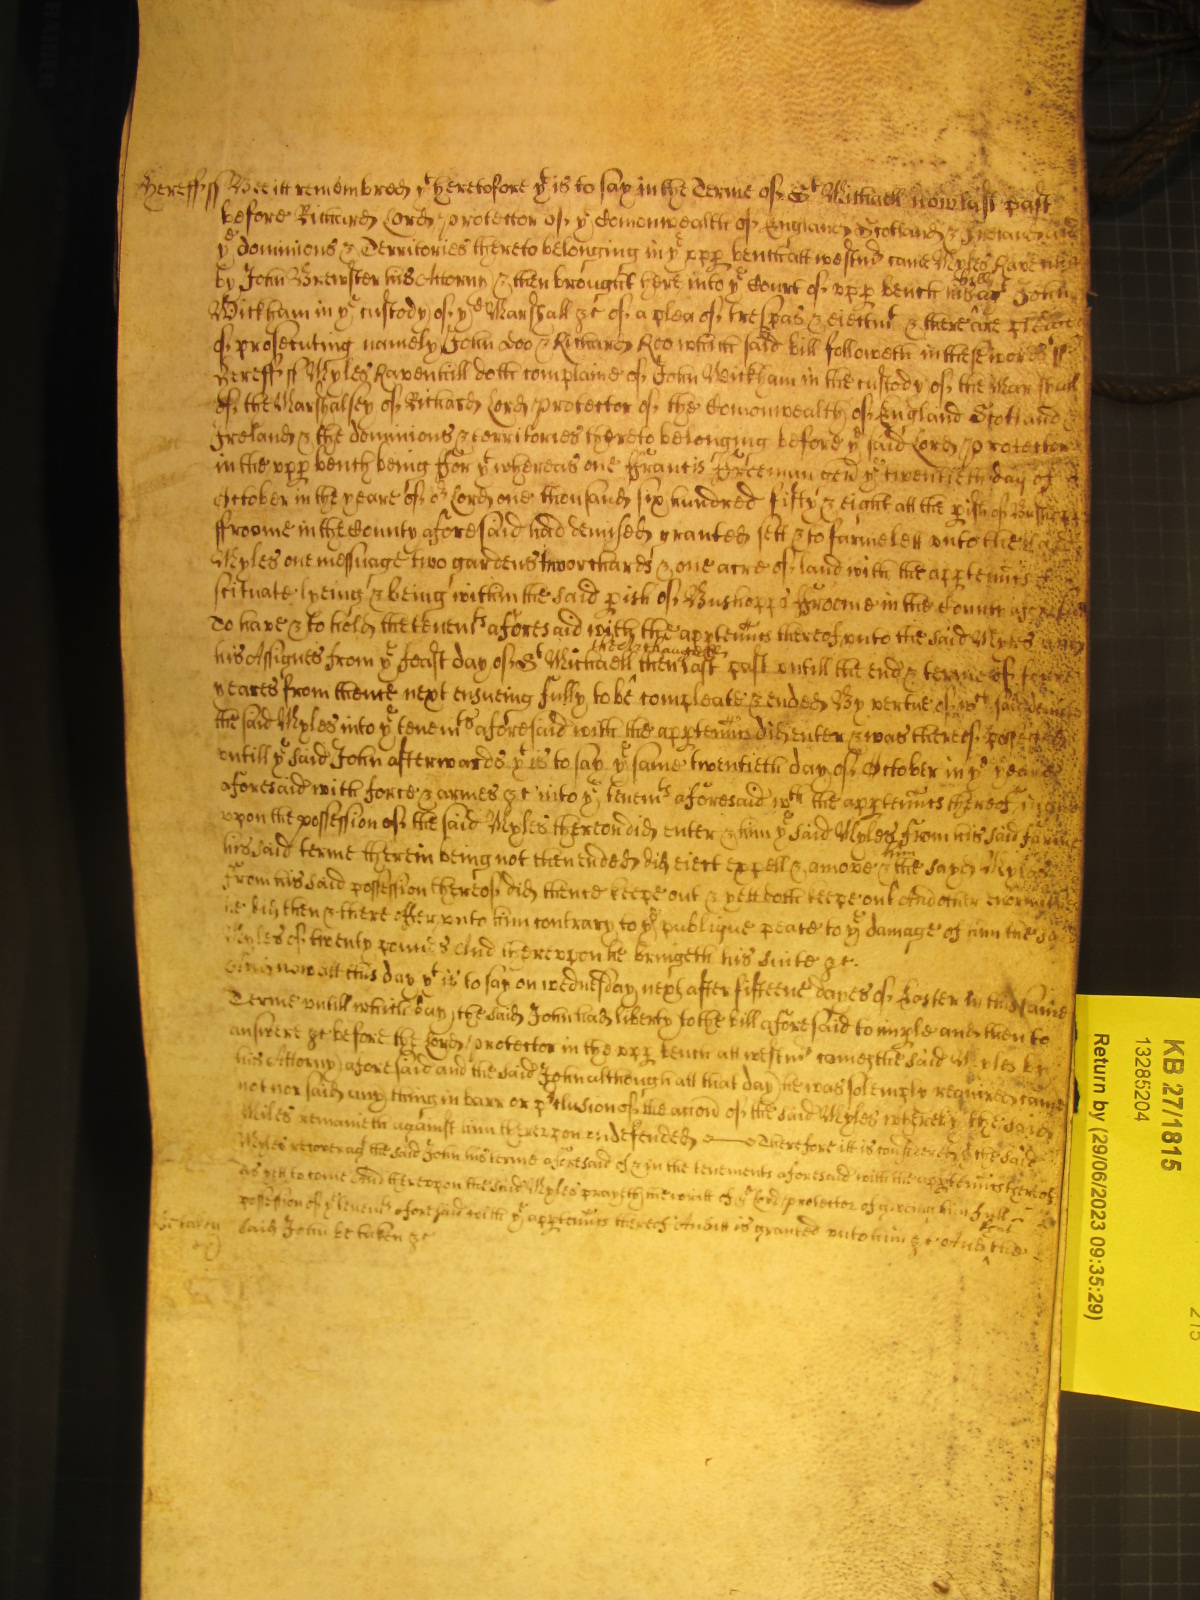 Hereff ss Bee itt remembred yt heretofore yt is to say in the Terme of St Michaell now last past
before Richard Lord Protector of ye Comonwealth of England Scotland & Ireland and
ye dominions & Territories thereto belonging in ye vpp bench att westmr came Myles Raventhill
by John Brewster his Attorny & then brought here into ye Court of vpp bench his bill agt John
Wickham in ye custody of ye Marshall &c of a plea of trespas & eiectmt & there are pledges
of prosecuting namely John Doo & Richard Roo which said bill followeth in these words ss
Hereff ss Myles Raventhill doth complaine of John Wickham in the custody of the Marshall
of the Marshalsey of Richard Lord Protector of the Comonwealth of England Scotland &
Ireland & the dominions & territories thereto belonging before ye said Lord Protector
in the vpp bench being For yt whereas one Francis Freeman gen ye twentieth day of
October in the yeare of or Lord one thousand six hundred fifty & eight att the pish of Bushopps
ffroome in the County aforesaid had demised granted sett & to farme lett vnto the said
Myles one messuage two gardens two orchards & one acre of land with the apptenncs
scituate lyeing & being within the said pish of Bushopps Froome in the County aforesaid
To have & to hold the tenemts aforesaid with the apptenncs thereof vnto the said Myles and
his Assignes from ye feast day of St Michaell the Archangell then last past untill the end & terme of
yeares from thence next ensueing fully to be compleate & ended By vertue of wch said demise
the said Myles into ye tenemts aforesaid with the apptenncs did enter & was thereof possessed
untill ye said John afterwards yt is to say ye same twentieth day of October in ye yeare
aforesaid with force & armes &c into ye tenemts aforesaid wth the apptenncs thereof in &
vpon the possession of the said Myles thereon did enter & him ye said Myles from his said farme
his said terme therein being not then ended did eiect expell & amove & him the sayd Myles
from his said possession thereof did thence keepe out & yett doth keepe out And other enormities
he did then & there offer vnto him contrary to ye publique peace to ye damage of him the said
Myles of twenty pounds And therevpon he bringeth his suite &c.
And now att this day yt is to say on wednesday next after fifteene dayes of Easter in this same
Terme untill which day the said John had liberty to the bill aforesaid to imple and then to
answere &c before the Lord Protector in the vpp bench att westmr comes the said Myles by
his Attorny aforesaid and the said John although att that day he was solemply required came
not nor said any thing in barr or pclusion of the accon of the said Myles whereby the said
Miles remaineth against him therevpon undefended Therefore itt is considered yt the said
Myles recover agt the said John his terme aforesaid of & in the tenements aforesaid with the apptenncs thereof
as yett to come And therevpon the said Myles prayeth the writt of ye Lord Protector of giveing him full
possession of ye tenemts aforesaid with ye apptenncs thereof And itt is granted vnto him &c And lett the
said John be taken &c
be taken
KB 27/1815
13285204
Return by (29/06/2023 09:35:29)
215